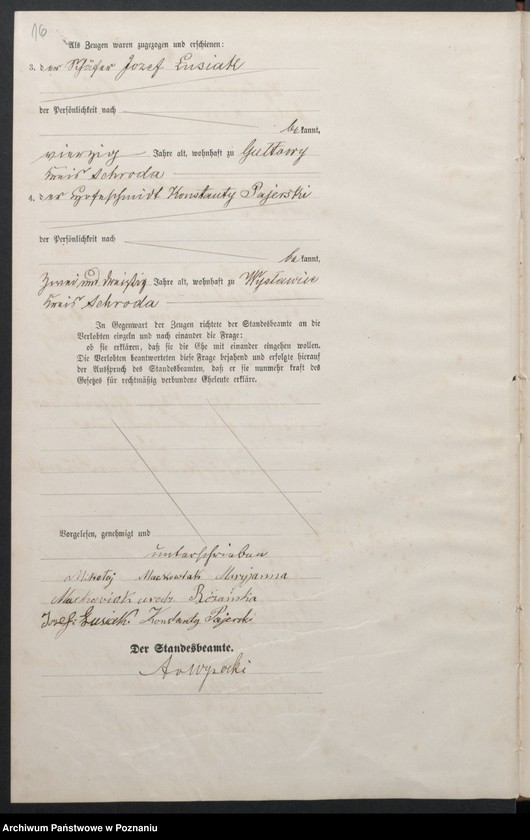 16
Als Zeugen waren zugezogen und erschienen:
3. der Schäfer Jozef Lusiak
der Persönlichkeit nach
bekannt,
vierzig Jahre alt, wohnhaft zu Gultowy
Kreis Schroda
4. der Konstanty Pajerski
der Persönlichkeit nach
bekannt,
zwei und dreißig Jahre alt, wohnhaft zu Wysławice
Kreis Schroda
In Gegenwart der Zeugen richtete der Standesbeamte an die
Verlobten einzeln und nach einander die Frage:
ob sie erklären, daß sie die Ehe mit einander eingehen wollen.
Die Verlobten beantworteten diese Frage bejahend und erfolgte hierauf
der Ausspruch des Standesbeamten, daß er sie nunmehr kraft des
Gesetzes für rechtmäßig verbundene Eheleute erkläre.
Vorgelesen, genehmigt und
unterschrieben
Mikołaj Maćkowiak Maryjanna
Maćkowiak urodz Rózańska
Jozef Łusiak Konstanty Pajerski
Der Standesbeamte.
Archiwum Państwowe w Poznaniu